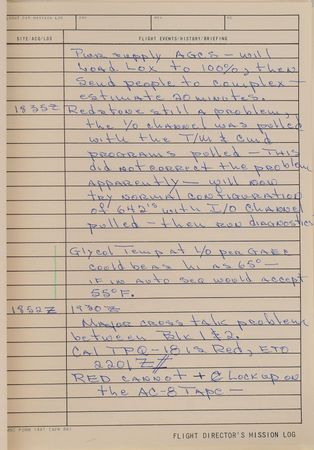 FLIGHT DIR MISSION LOG
SITE/ACQ/LOS FLIGHT EVENTS/HISTORY/BRIEFING
Pwr supply AGCS – will
load LOX to 100%, then
send people to complex –
estimate 20 minutes.
1835Z Redstone still a problem,
the I/O channel was pulled
with the T/M & Cmd
programs pulled – THIS
did not correct the problem
apparently – will now
try NORMAL CONFIGURATION
of 642's with I/O channel
pulled – then run diagnostics
Glycol Temp at L/O per GAEC
could be as hi as 65° –
IF IN AUTO SEQ would accept
55°F.
1852Z 1930Z
Major cross talk problem
between Blk 1 & 2.
Cal TPQ-18 is Red, ETO
2201Z
RED CANNOT Lockup on
the AC-8 Tape –
MSC FORM 1447
FLIGHT DIRECTOR'S MISSION LOG